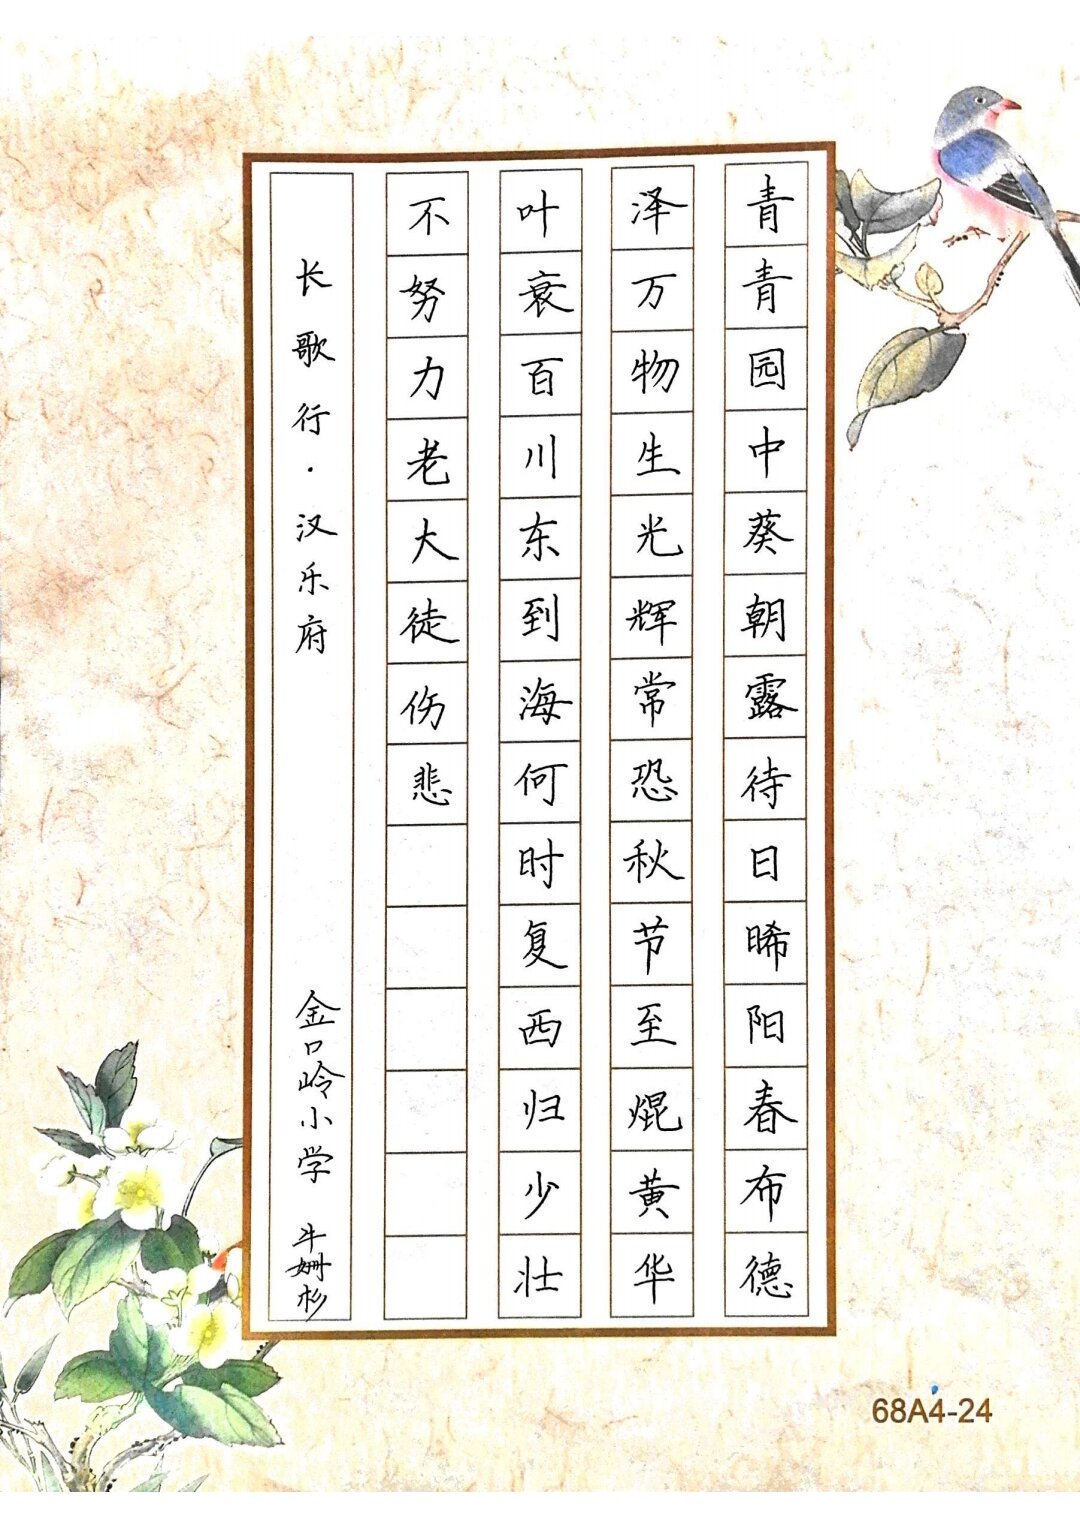 青青园中葵朝露待日晞阳春布德
泽万物生光辉常恐秋节至焜黄华
叶衰百川东到海何时复西归少壮
不努力老大徒伤悲
长歌行·汉乐府 金口岭小学 牛姗杉
68A4-24